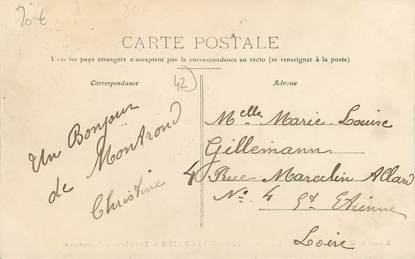 20€
CARTE POSTALE
Tous les pays étrangers n'acceptent pas la correspondance au recto (se renseigner à la poste)
Correspondance
42
Adresse
Un Bonjour
de Montrond
Christine
Melle Marie-Louise
Gillemann
4 Rue Marcelin Allard
No 4 St Etienne
Loire